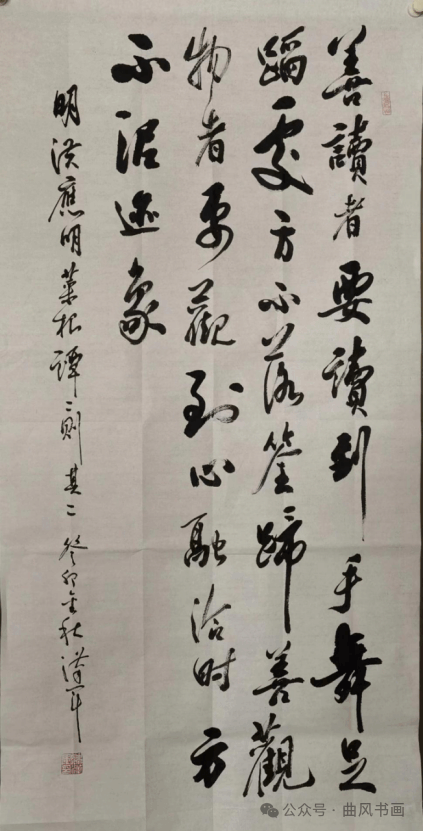 善讀者要讀到手舞足
蹈處方不落筌蹄善觀
物者要觀到心融洽时方
不泥迹象
明洪應明菜根譚二則其二 癸卯金秋
公众号·曲风书画